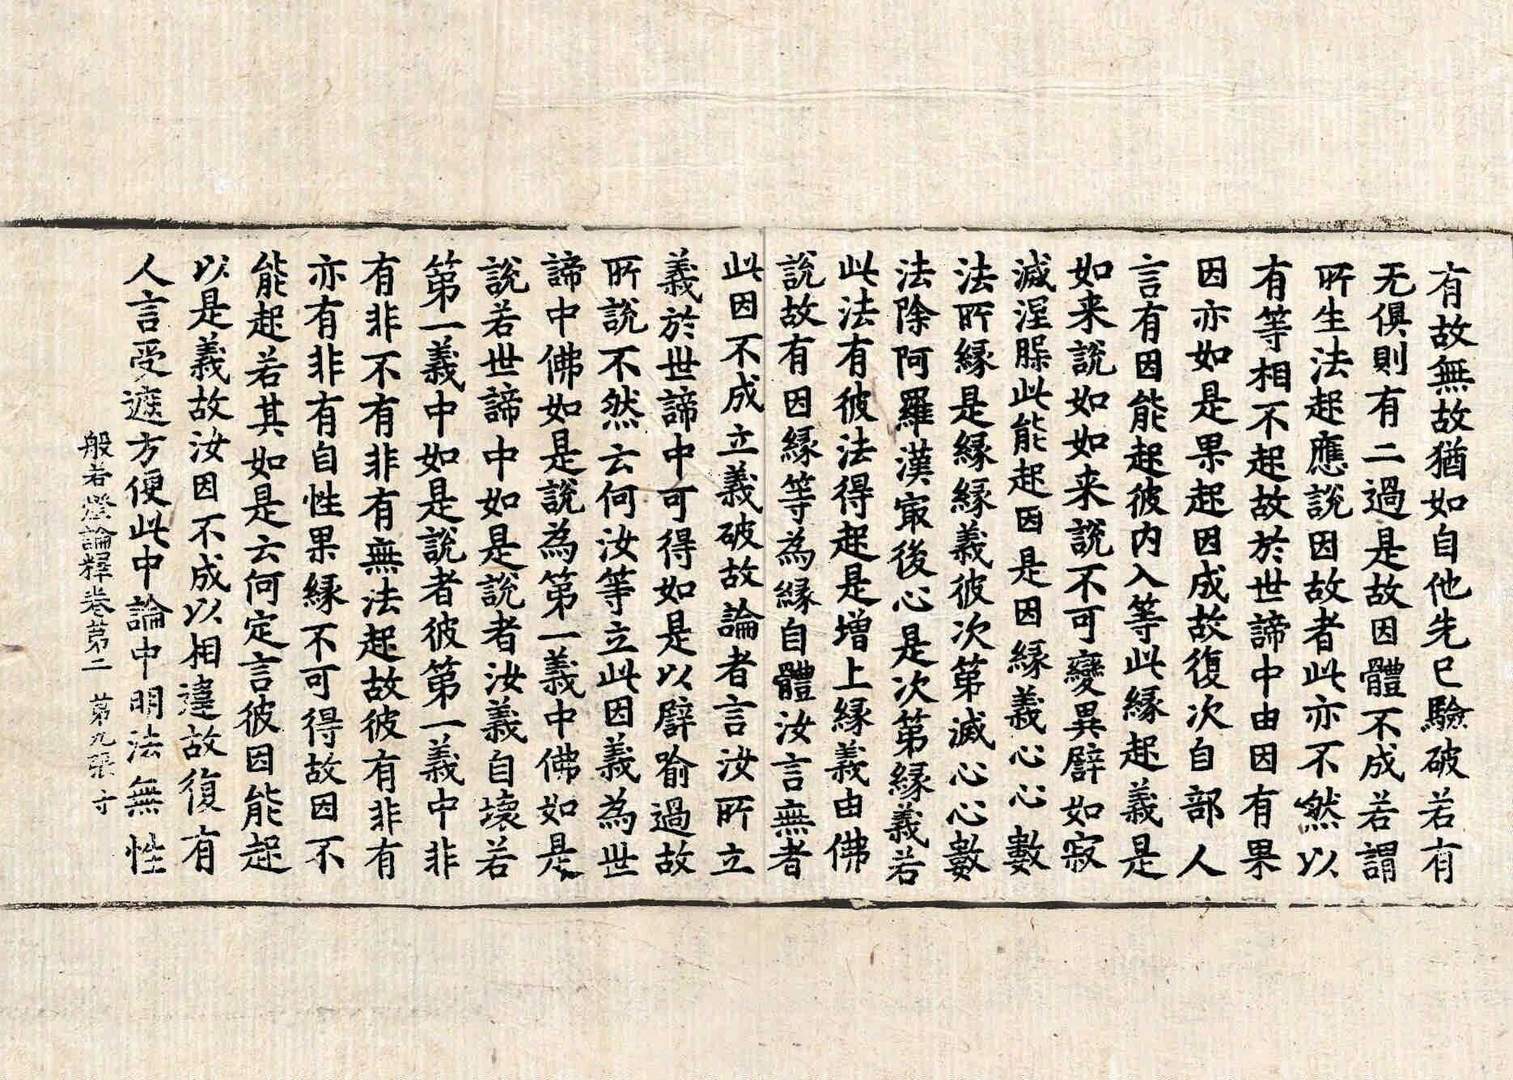 有故無故猶如自他先已驗破若有
无俱則有二過是故因體不成若謂
所生法起應說因故者此亦不然以
有等相不起故於世諦中由因有果
因亦如是果起因成故復次自部人
言有因能起彼內入等此緣起義是
如来說如如来說不可變異譬如寂
滅涅槃此能起因是因緣義心心數
法所緣是緣緣義彼次第滅心心數
法除阿羅漢最後心是次第緣義若
此法有彼法得起是增上緣義由佛
說故有因緣等為緣自體汝言無者
此因不成立義破故論者言汝所立
義於世諦中可得如是以譬喻過故
所說不然云何汝等立此因義為世
諦中佛如是說為第一義中佛如是
說若世諦中如是說者汝義自壞若
第一義中如是說者彼第一義中非
有非不有非有無法起故彼有非有
亦有非有自性果緣不可得故因不
能起若其如是云何定言彼因能起
以是義故汝因不成以相違故復有
人言受遮方便此中論中明法無性
般若燈論釋卷第二 第九張 寸